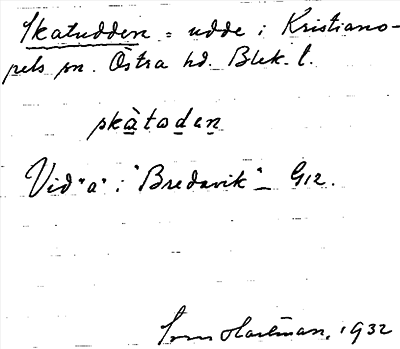 Skatudden = udde i Kristiano-
pels sn. Östra hd. Blek. l.
skàtaden
Vid "a" i "Bredavik" G12.
Hartman, 1932